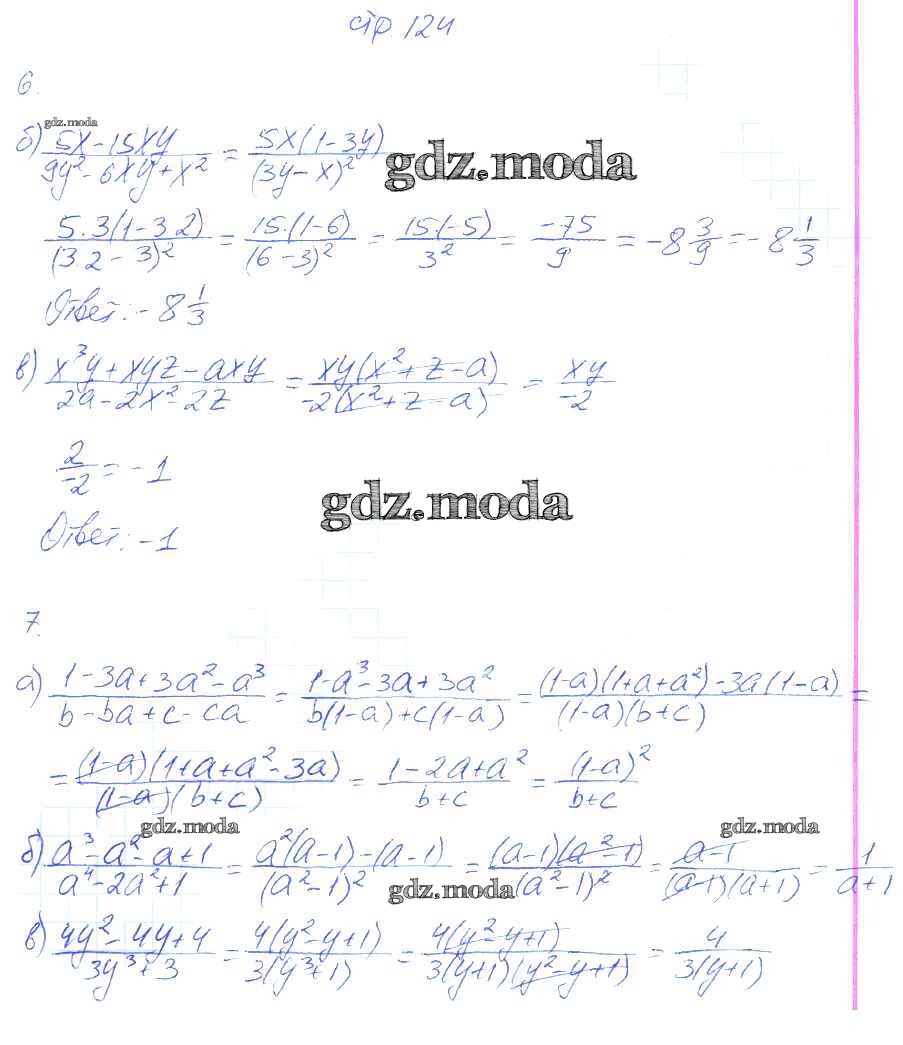 стр. 124
6.
gdz.moda
б) (5x-15xy)/(9y²-6xy+x²) = 5x(1-3y)/(3y-x)²
gdz.moda
5·3(1-3·2)/(3·2-3)² = 15·(1-6)/(6-3)² = 15·(-5)/3² = -75/9 = -8 3/9 = -8 1/3
Ответ: -8 1/3
в) (x³y+xyz-axy)/(2a-2x²-2z) = xy(x²+z-a)/-2(x²+z-a) = xy/-2
2/-2 = -1
gdz.moda
Ответ: -1
7.
а) (1-3a+3a²-a³)/(b-ba+c-ca) = (1-a³-3a+3a²)/(b(1-a)+c(1-a)) = ((1-a)(1+a+a²)-3a(1-a))/((1-a)(b+c)) =
= (1-a)(1+a+a²-3a)/((1-a)(b+c)) = (1-2a+a²)/(b+c) = (1-a)²/(b+c)
gdz.moda gdz.moda
б) (a³-a²-a+1)/(a⁴-2a²+1) = (a²(a-1)-(a-1))/(a²-1)² = (a-1)(a²-1)/(a²-1)² = (a-1)/((a-1)(a+1)) = 1/(a+1)
gdz.moda
в) (4y²-4y+4)/(3y³+3) = 4(y²-y+1)/3(y³+1) = 4(y²-y+1)/3(y+1)(y²-y+1) = 4/3(y+1)